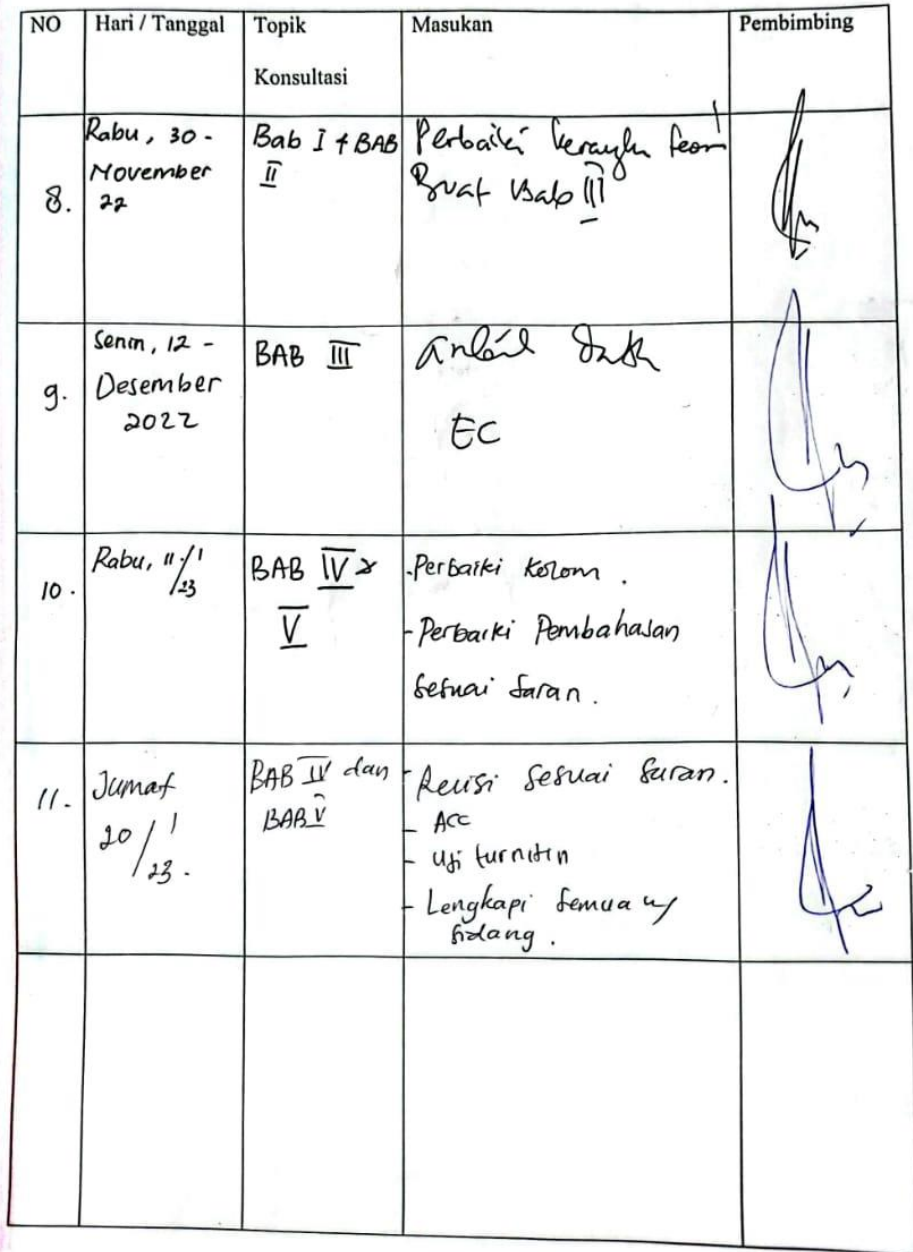 NO Hari / Tanggal Topik Konsultasi Masukan Pembimbing
8. Rabu, 30 - November 22
Bab I + BAB II
Perbaiki kerangka teori
Buat Bab III
9. Senin, 12 - Desember 2022
BAB III
Ambil data
EC
10. Rabu, 11/1/23
BAB IV & V
- Perbaiki kolom.
- Perbaiki Pembahasan
sesuai saran.
11. Jumat 20/1/23.
BAB IV dan
BAB V
- Revisi sesuai saran.
- Acc
- Uji turnitin
- Lengkapi semua u/
sidang.